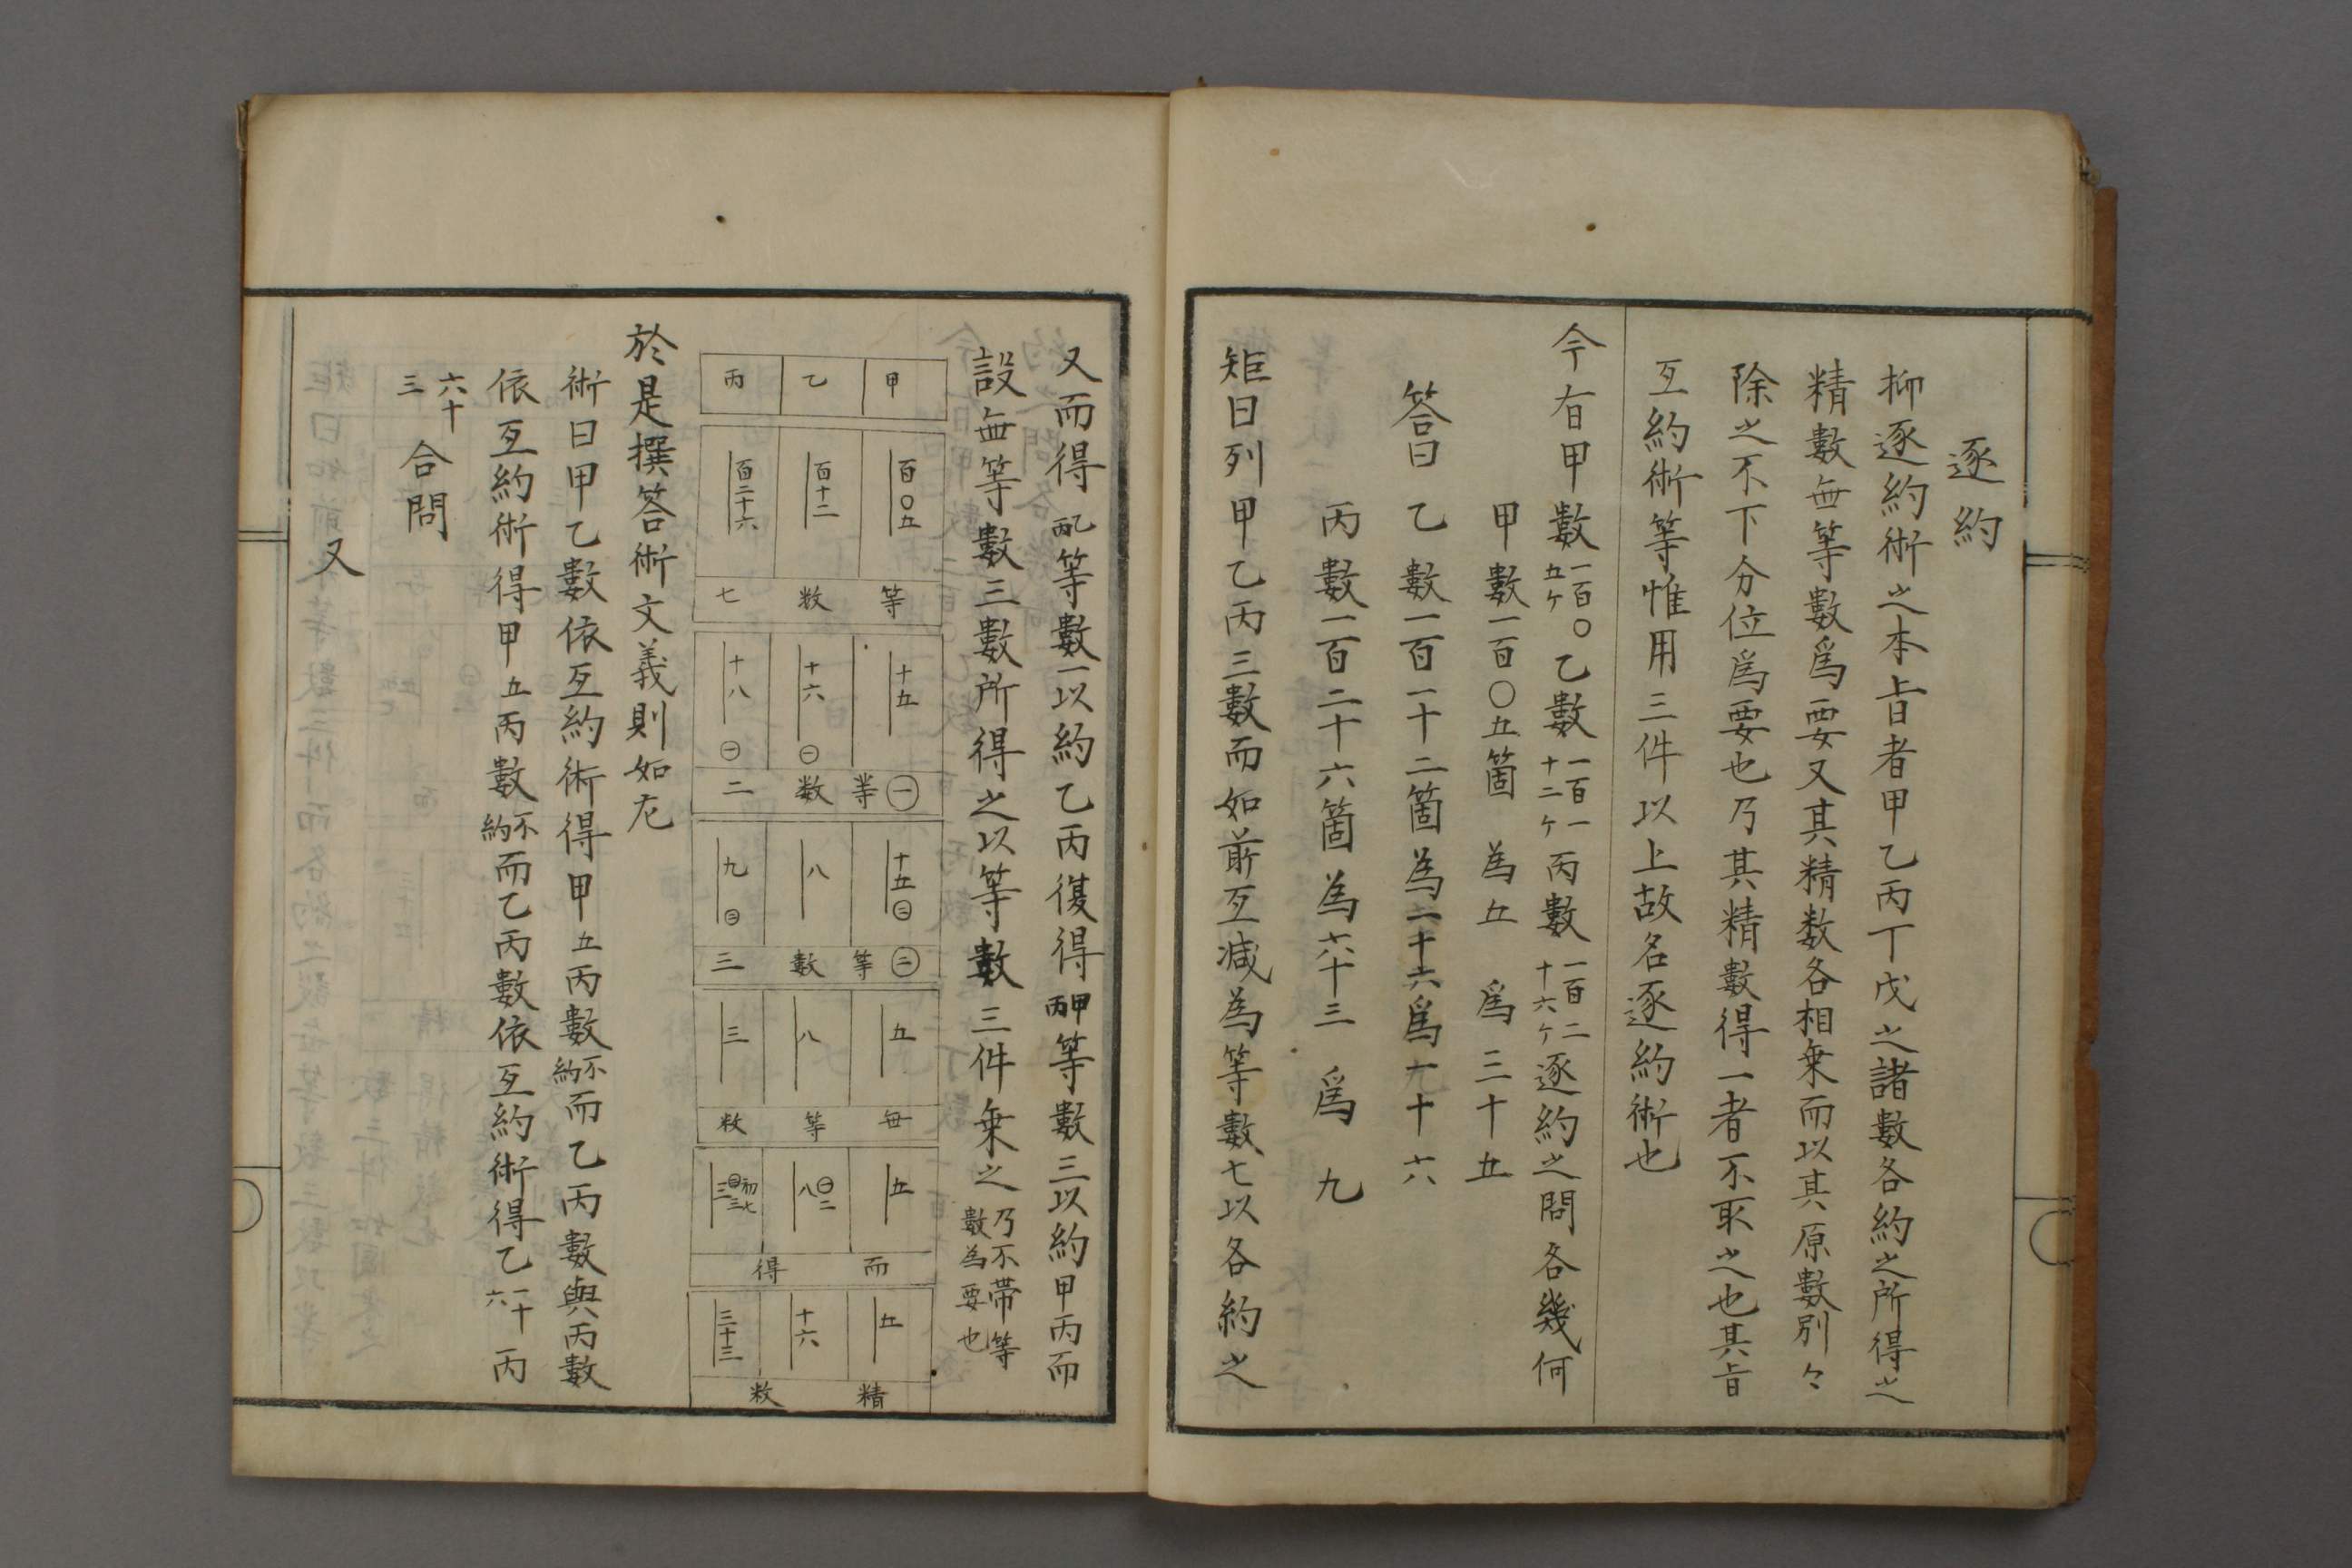 逐約
抑逐約術之本旨者甲乙丙丁戊之諸數各約之所得之
精數無等數爲要又其精数各相乗而以其原數別々
除之不下分位爲要也乃其精數得一者不取之也其旨
互約術等惟用三件以上故名逐約術也
今有甲數一百〇五ケ乙數一百一十二ケ丙數一百二十六ケ逐約之問各幾何
甲數一百〇五箇 為五 爲三十五
答曰 乙數一百一十二箇 為十六 爲一十六
丙數一百二十六箇 為六十三 爲九
矩曰列甲乙丙三數而如前互減為等數七以各約之
又而得乙丙等數一以約乙丙復得甲丙等數三以約甲丙而
設無等數三數所得之以等數三件乗之乃不帶等數為要也
甲 乙 丙
百〇五 百十二 百二十六
等 数 七
十五 十六㊀ 十八㊀
㊀等数 二
十五㊁ 八 九㊁
㊁等數 三
五 八 三
毎 等 数
五 ㊀二八 初七㊁三三
而 得
五 十六 三十三
精 数
於是撰答術文義則如左
術曰甲乙數依互約術得甲五丙數不約而乙丙數與丙數
依互約術得甲五丙數不約而乙丙數依互約術得乙一十六丙
六十三 合問
又